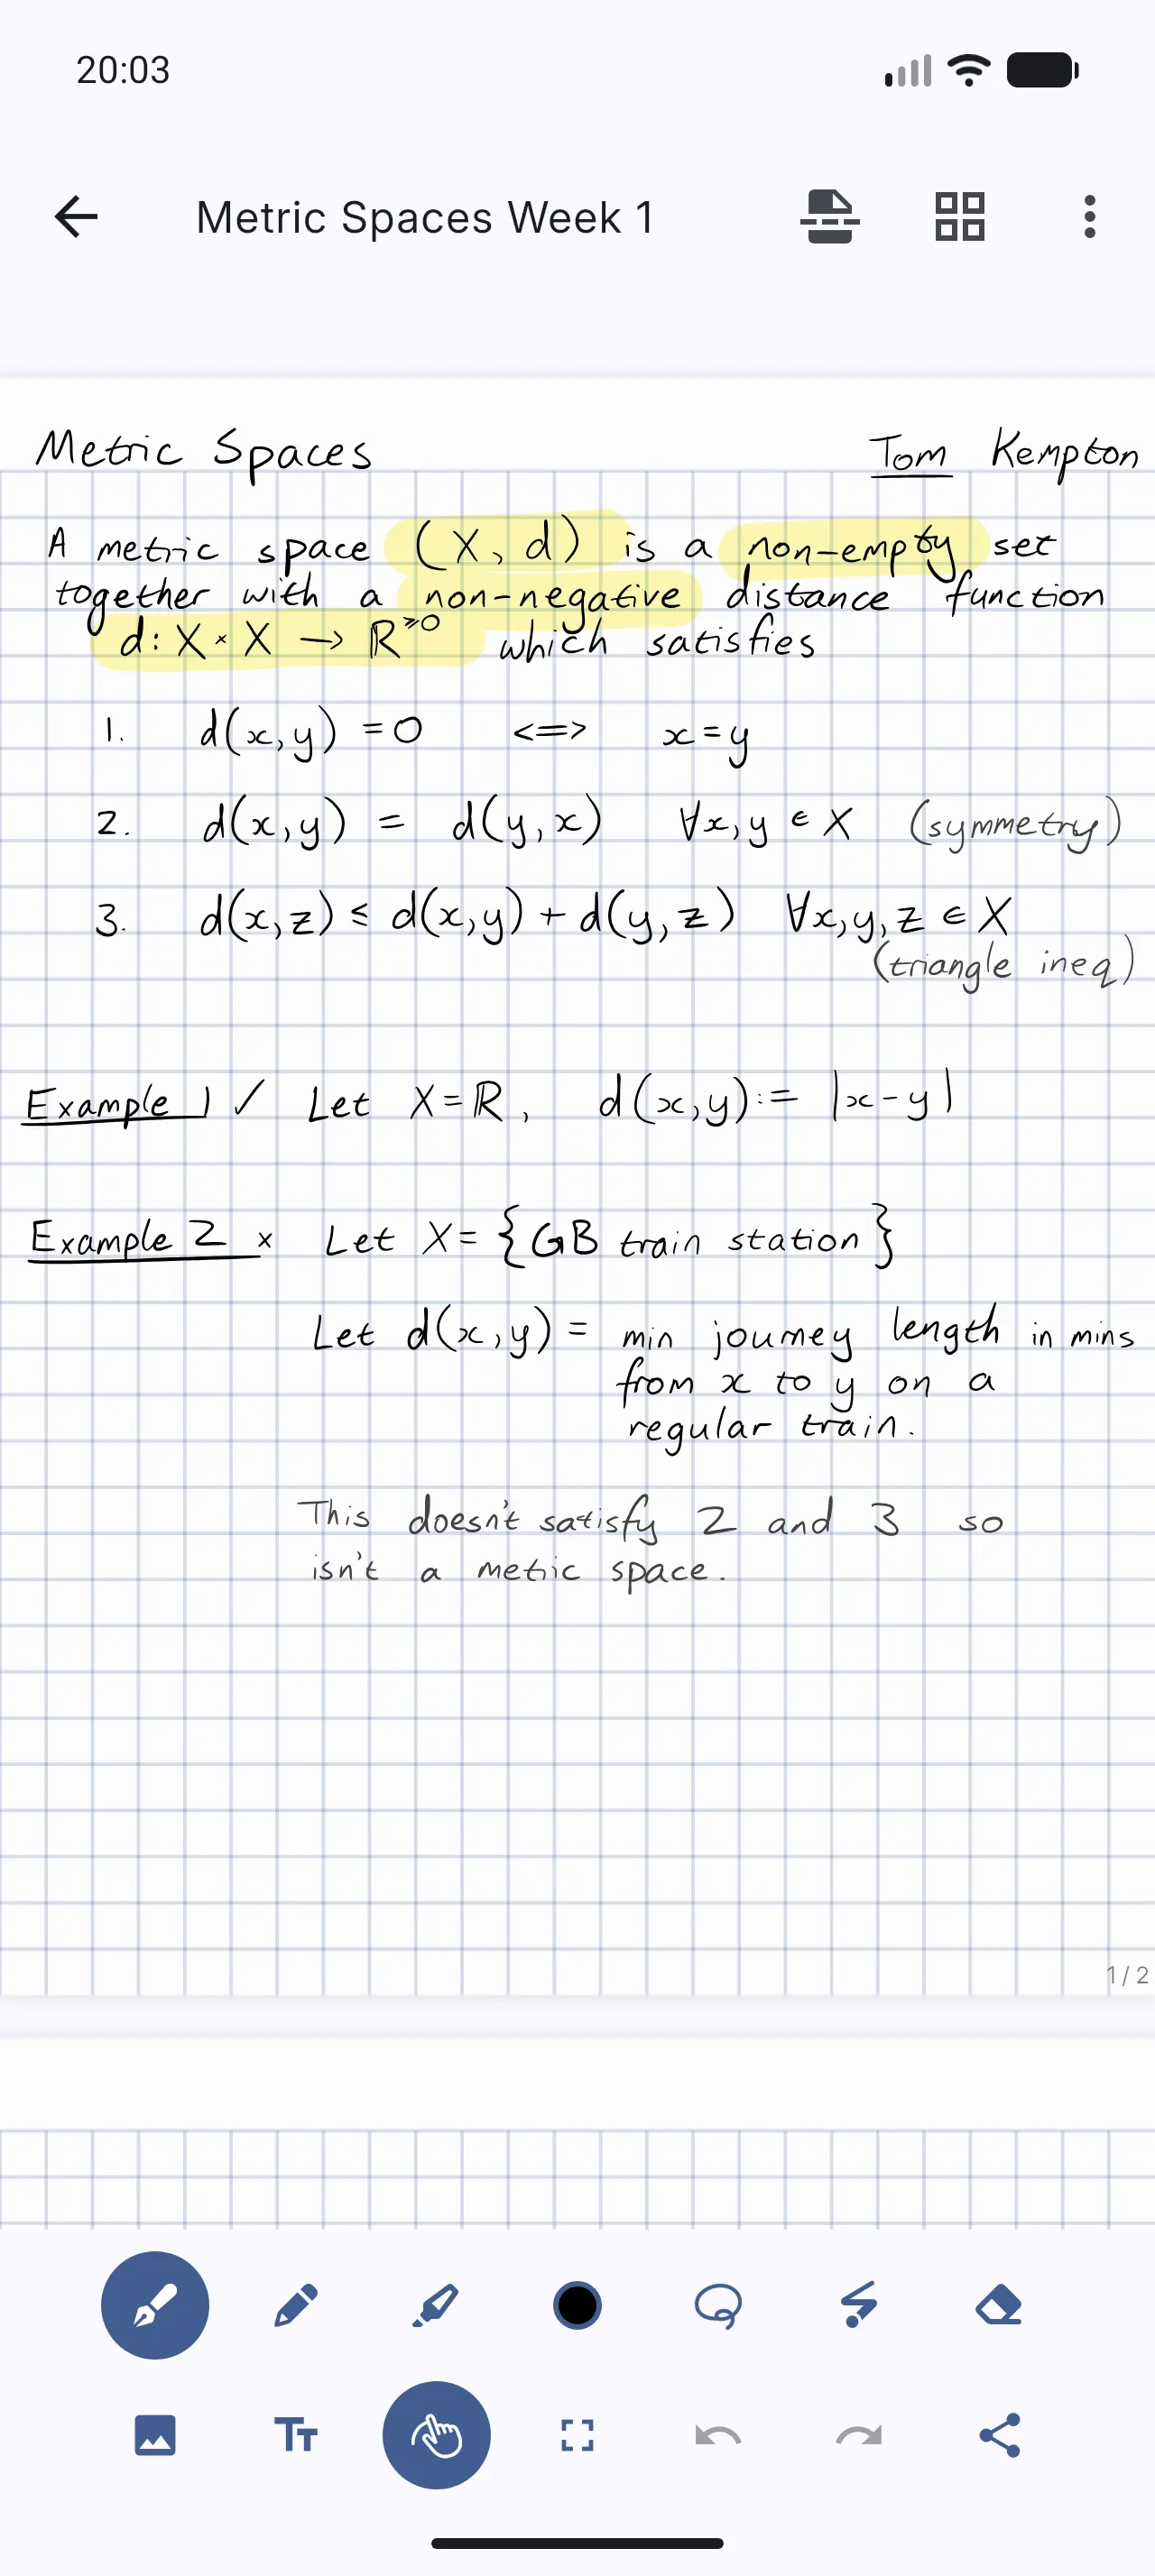 20:03
Metric Spaces Week 1
Metric Spaces Tom Kempton
A metric space (X, d) is a non-empty set
together with a non-negative distance function
d: X × X → ℝ^≥0 which satisfies
1. d(x,y) = 0 <=> x=y
2. d(x,y) = d(y,x) ∀x,y ∈ X (symmetry)
3. d(x,z) ≤ d(x,y) + d(y,z) ∀x,y,z ∈ X
(triangle ineq)
Example 1 ✓ Let X=ℝ, d(x,y):= |x-y|
Example 2 × Let X= {GB train station}
Let d(x,y) = min journey length in mins
from x to y on a
regular train.
This doesn't satisfy 2 and 3 so
isn't a metric space.
1 / 2